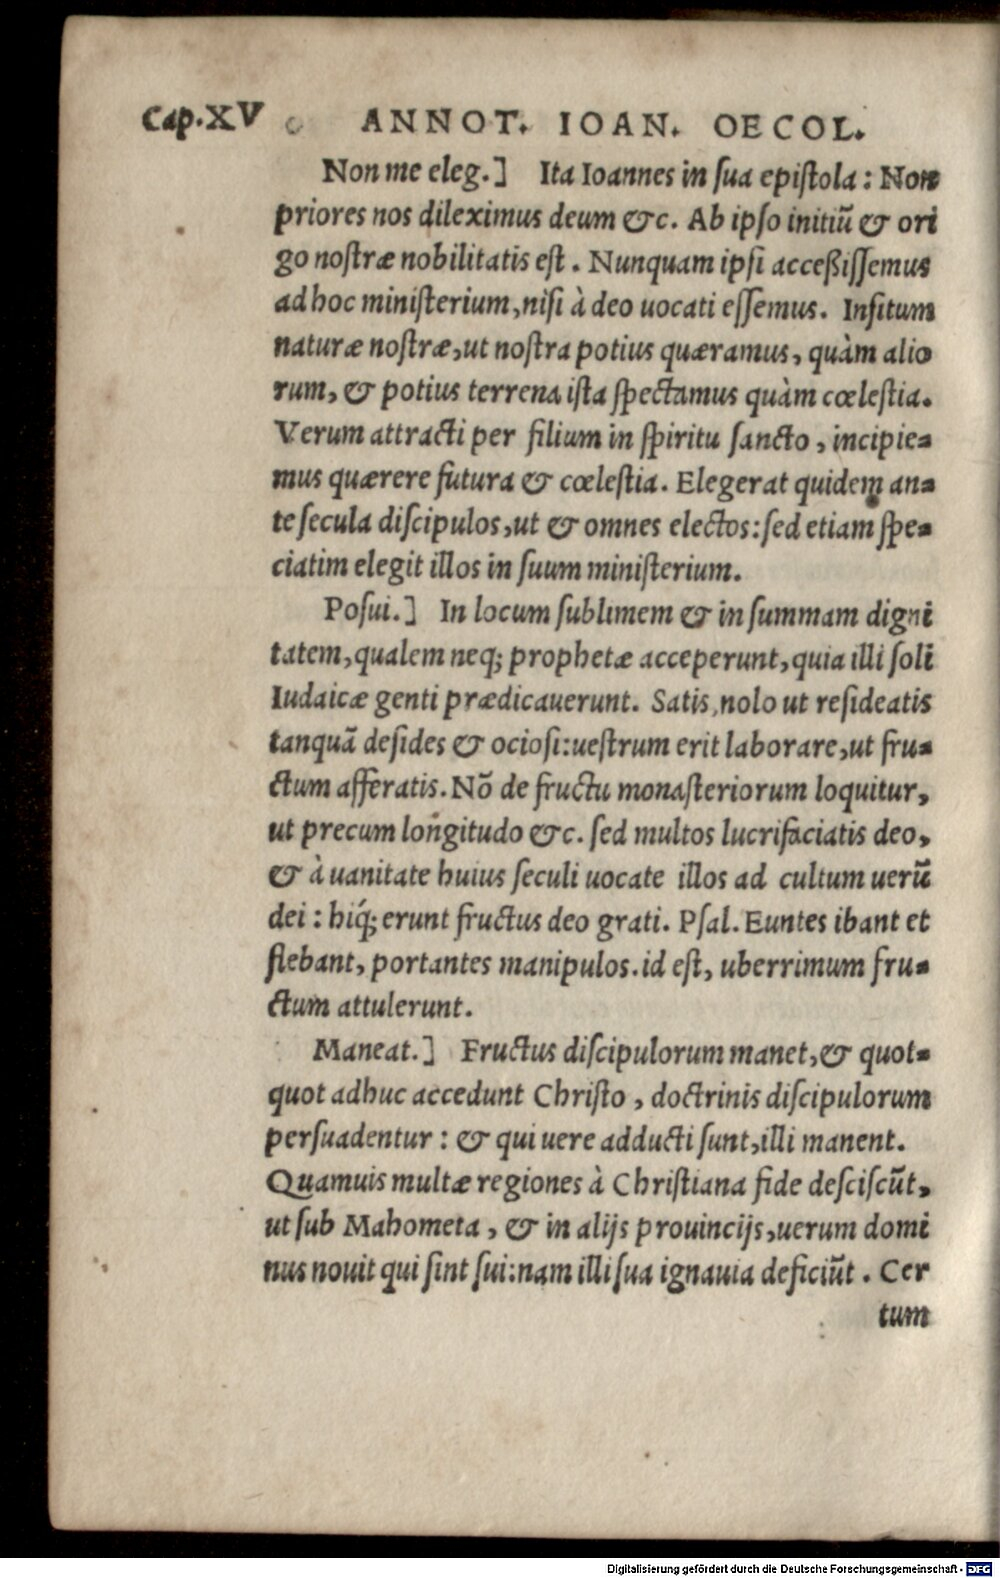 Cap.XV ANNOT. IOAN. OECOL.
Non me eleg.] Ita Ioannes in ſua epiſtola : Non
priores nos dileximus deum &c. Ab ipſo initiū & ori
go noſtræ nobilitatis eſt . Nunquam ipſi acceßiſſemus
ad hoc miniſterium,niſi à deo uocati eſſemus. Inſitum
naturæ noſtræ,ut noſtra potius quæramus, quàm alio
rum, & potius terrena iſta ſpectamus quàm cœleſtia.
Verum attracti per filium in ſpiritu ſancto , incipie-
mus quærere futura & cœleſtia. Elegerat quidem an-
te ſecula diſcipulos,ut & omnes electos:ſed etiam ſpe-
ciatim elegit illos in ſuum miniſterium.
Poſui.] In locum ſublimem & in ſummam digni
tatem,qualem neq; prophetæ acceperunt,quia illi ſoli
Iudaicæ genti prædicauerunt. Satis,nolo ut reſideatis
tanquā deſides & ocioſi:ueſtrum erit laborare,ut fru-
ctum afferatis. Nō de fructu monaſteriorum loquitur,
ut precum longitudo &c. ſed multos lucrifaciatis deo,
& à uanitate huius ſeculi uocate illos ad cultum uerū
dei : hiq́; erunt fructus deo grati. Pſal. Euntes ibant et
flebant, portantes manipulos.id eſt, uberrimum fru-
ctum attulerunt.
Maneat.] Fructus diſcipulorum manet,& quot-
quot adhuc accedunt Chriſto , doctrinis diſcipulorum
perſuadentur : & qui uere adducti ſunt,illi manent.
Quamuis multæ regiones à Chriſtiana fide deſciſcūt,
ut ſub Mahometa , & in alijs prouincijs,uerum domi
nus nouit qui ſint ſui:nam illi ſua ignauia deficiūt . Cer
tum
Digitalisierung gefördert durch die Deutsche Forschungsgemeinschaft - DFG